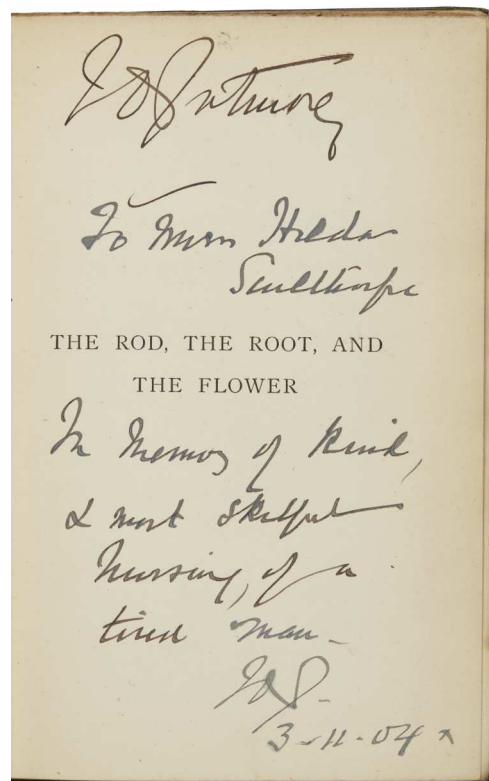 TDPatmore
To Miss Hilda
Sculthorpe
THE ROD, THE ROOT, AND
THE FLOWER
In Memory of kind,
& most skilful
Nursing, of a
tired man –
TDP.
3-11-04